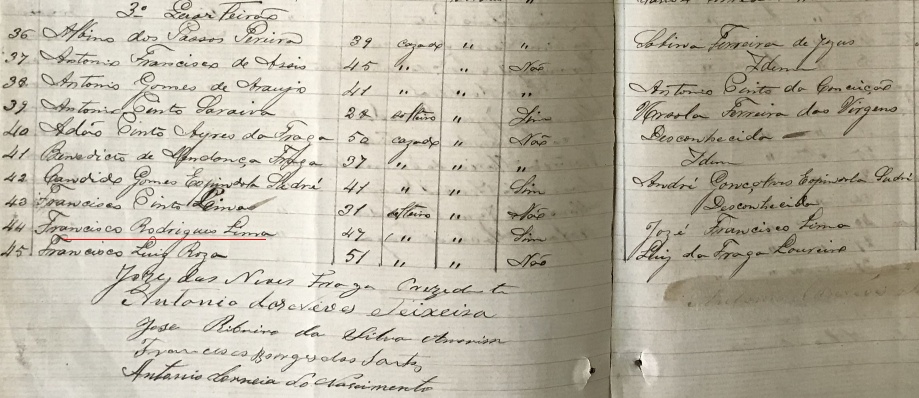 3º Quarteirão
36 Albino dos Passos Pereira 39 cazado " " Sabina Ferreira de Jezus
37 Antonio Francisco de Assis 45 " " Não Idem
38 Antonio Gomes de Araujo 41 " " " Antonio Pinto da Conceição
39 Antonio Pinto Saraiva 22 solteiro " Sim Ursola Ferreira das Virgens
40 Adão Pinto Ayres da Fraga 50 cazado " Não Desconhecido
41 Benedicto de Mendonça Fraga 37 " " " Idem
42 Candido Gomes Espindola Sudré 41 " " Sim André Gonçalves Espindola Sudré
43 Francisco Pinto Lima 31 solteiro " Não Desconhecido
44 Francisco Rodrigues Lima 47 " " Sim Jozé Francisco Lima
45 Francisco Luis Roza 51 " " Não Luiz da Fraga Loureiro
Joze das Neves Fraga Prezidente
Antonio das Neves Teixeira
Jose Ribeiro da Silva
Francisco Borges dos Santos
Antonio Correia do Nascimento